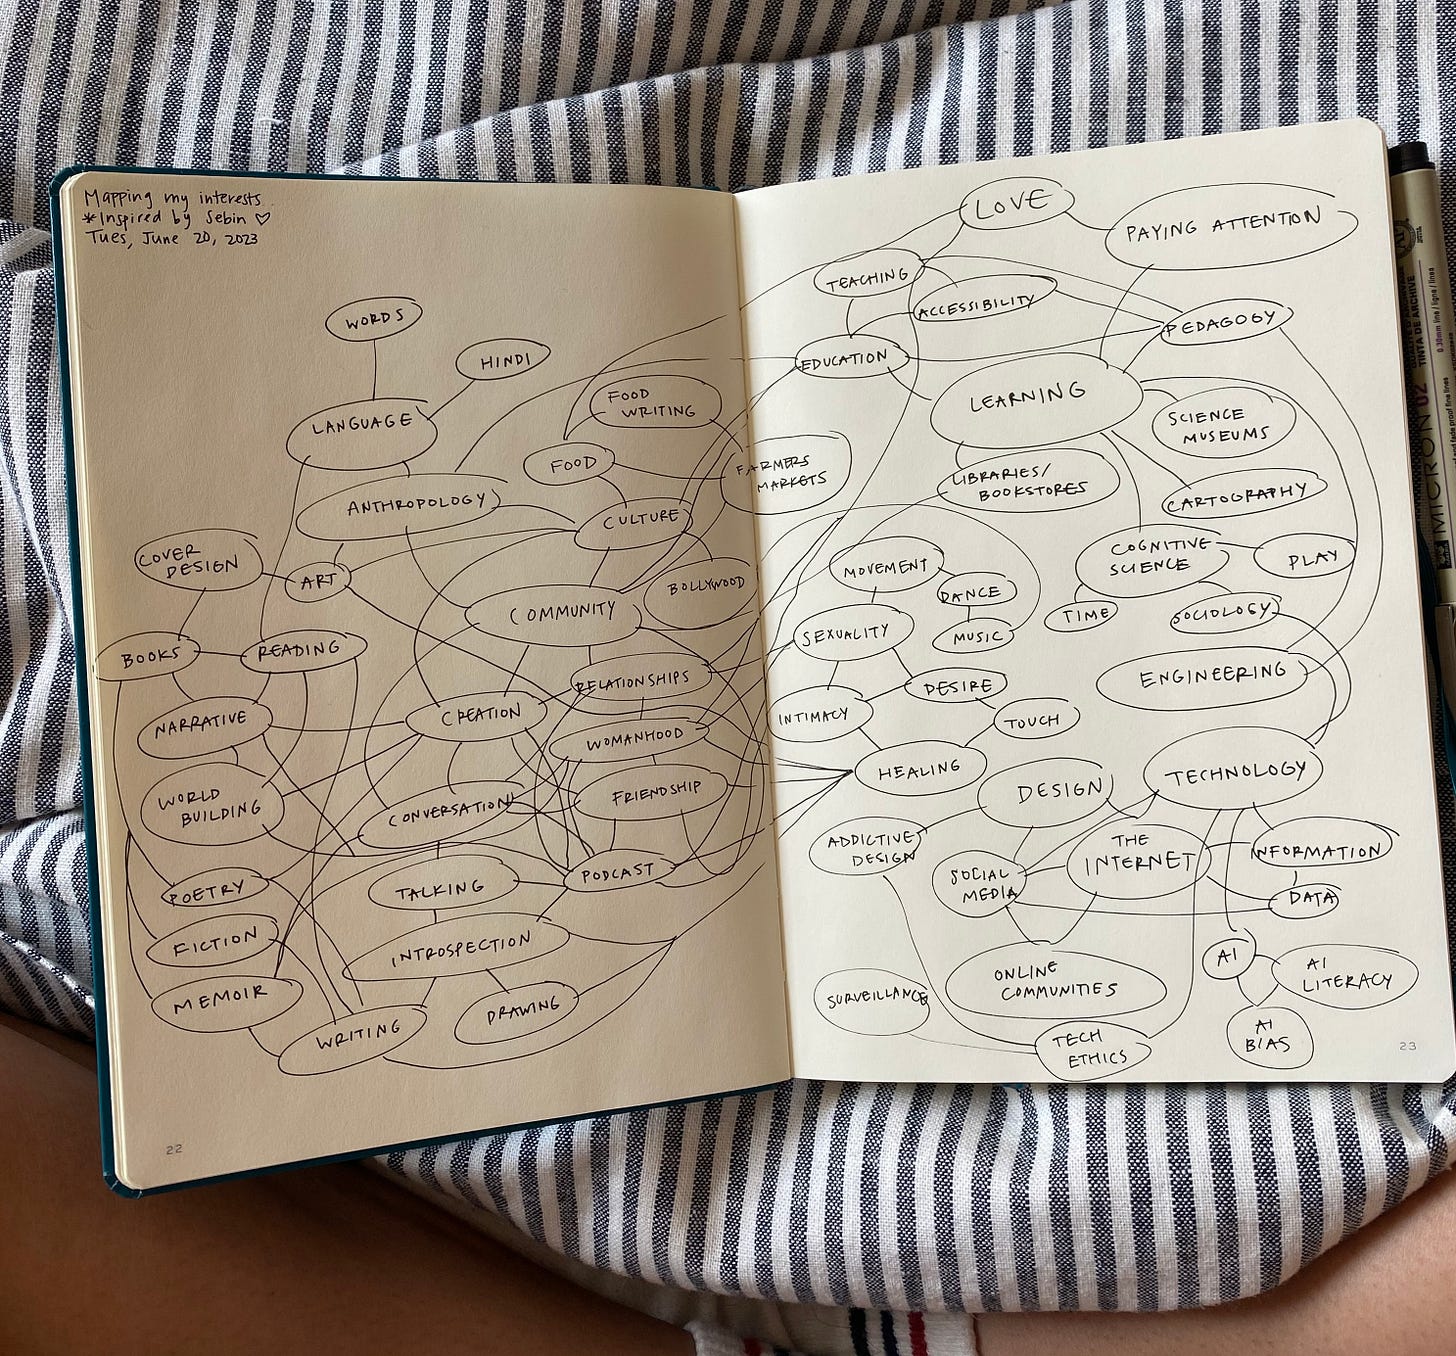 Mapping my interests
*Inspired by Sebin ♡
Tues, June 20, 2023
WORDS
HINDI
LANGUAGE
FOOD
WRITING
FOOD
ANTHROPOLOGY
CULTURE
COVER
DESIGN
ART
BOLLYWOOD
COMMUNITY
BOOKS
READING
RELATIONSHIPS
NARRATIVE
CREATION
WOMANHOOD
WORLD
BUILDING
CONVERSATION
FRIENDSHIP
POETRY
TALKING
PODCAST
FICTION
INTROSPECTION
MEMOIR
DRAWING
WRITING
22
LOVE
PAYING ATTENTION
TEACHING
ACCESSIBILITY
PEDAGOGY
EDUCATION
LEARNING
SCIENCE
MUSEUMS
FARMERS
MARKETS
LIBRARIES/
BOOKSTORES
CARTOGRAPHY
COGNITIVE
SCIENCE
PLAY
MOVEMENT
DANCE
TIME
SOCIOLOGY
SEXUALITY
MUSIC
ENGINEERING
DESIRE
INTIMACY
TOUCH
HEALING
TECHNOLOGY
DESIGN
ADDICTIVE
DESIGN
THE
INTERNET
INFORMATION
SOCIAL
MEDIA
DATA
AI
AI
LITERACY
ONLINE
COMMUNITIES
SURVEILLANCE
TECH
ETHICS
AI
BIAS
23
MICRON 02
TINTA DE ARCHIVE
0.30mm line / ligne / lines